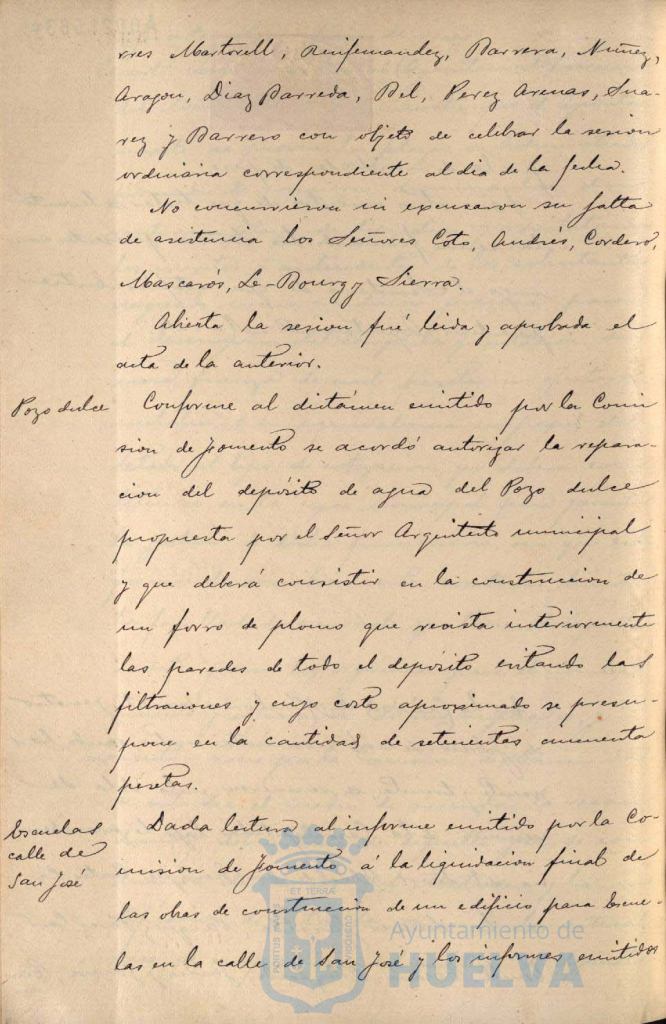 rres Martorell, Reinfernandez, Barrera, Nuñez,
Aragon, Diaz Barreda, Bel, Perez Arenas, Sua-
rez y Barrero con objeto de celebrar la sesion
ordinaria correspondiente al dia de la fecha.
No concurrieron ni excusaron su falta
de asistencia los Señores Coto, Andrés, Cordero,
Mascarós, Le-Bourg y Sierra.
Abierta la sesion fué leida y aprobada el
acta de la anterior.
Pozo dulce
Conforme al dictámen emitido por la Comi
sion de fomento se acordó autorizar la repara-
cion del depósito de agua del Pozo dulce
propuesta por el Señor Arquitecto municipal
y que deberá consistir en la construccion de
un forro de plomo que revista interiormente
las paredes de todo el depósito evitando las
filtraciones y cuyo costo aproximado se presu-
pone en la cantidad de setecientas cincuenta
pesetas.
Escuelas
calle de
San José
Dada lectura al informe emitido por la Co-
mision de fomento á la liquidacion final de
las obras de construccion de un edificio para Escue-
las en la calle de San José y los informes emitidos
Ayuntamiento de
HUELVA